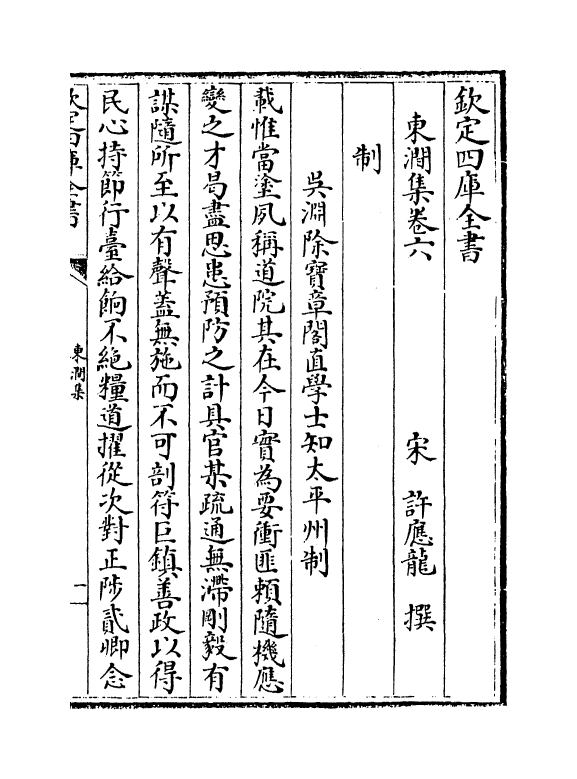 欽定四庫全書
東澗集卷六
宋 許應龍 撰
制
吳淵除寶章閣直學士知太平州制
載惟當塗夙稱道院其在今日實為要衝匪賴隨機應
變之才曷盡思患預防之計具官某疏通無滯剛毅有
謀隨所至以有聲蓋無施而不可剖符巨鎮善政以得
民心持節行臺給餉不絶糧道擢從次對正陟貳卿念
欽定四庫全書
東澗集
一